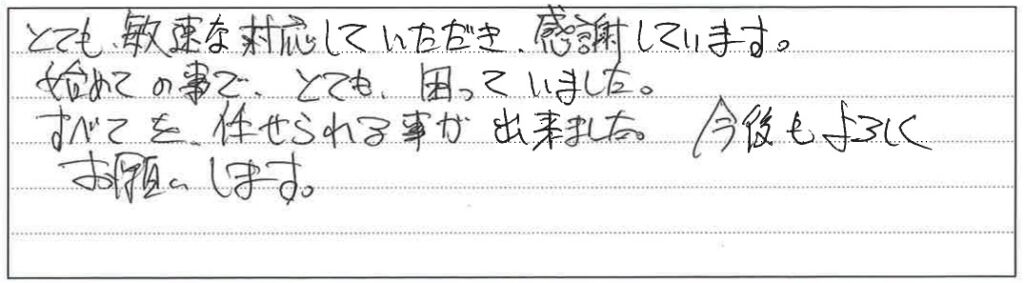 とても、敏速な対応していただき、感謝しています。
始めての事で、とても、困っていました。
すべてを、任せられる事が出来ました。今後もよろしく
お願いします。